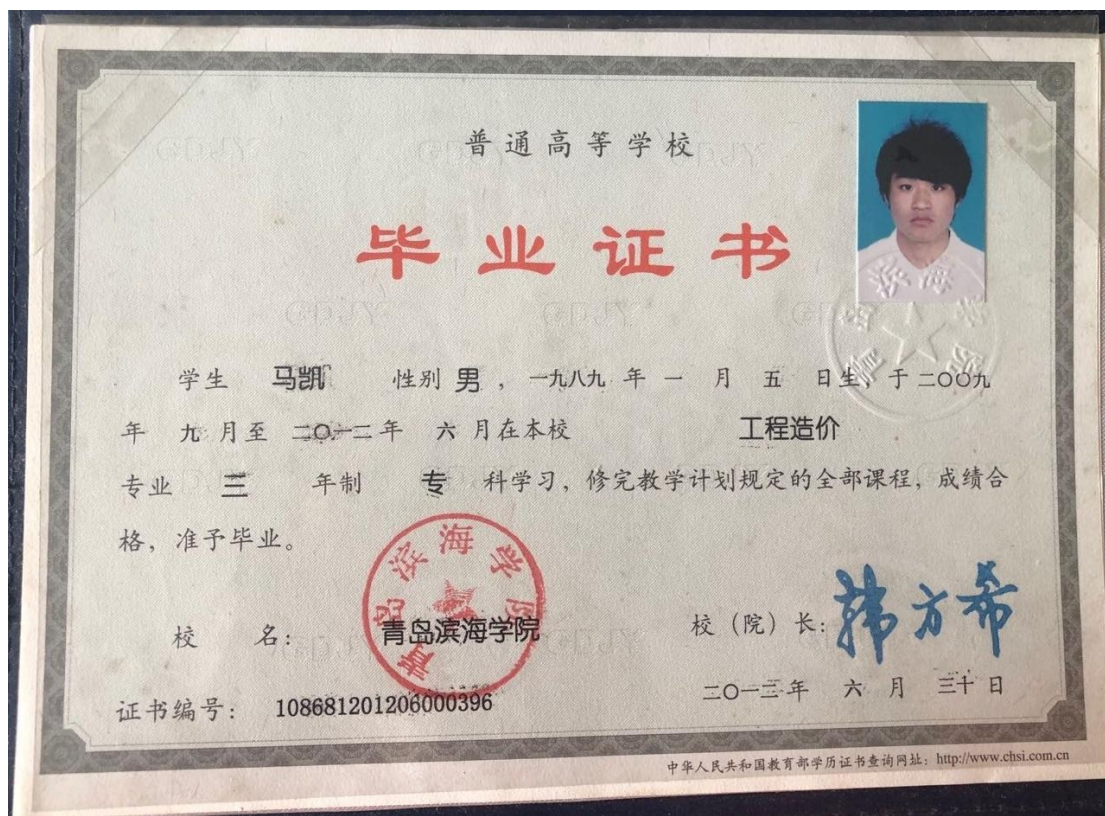 普通高等学校
毕业证书
学生 马凯 性别 男 ，一九八九 年 一 月 五 日生，于 二〇〇九
年 九 月至 二〇一二 年 六 月在本校 工程造价
专业 三 年制 专 科学习，修完教学计划规定的全部课程，成绩合
格，准予毕业。
青岛滨海学院
校 名： 青岛滨海学院
校（院）长：韩方希
证书编号： 108681201206000396
二〇一三年 六 月 三十 日
中华人民共和国教育部学历证书查询网址：http://www.chsi.com.cn